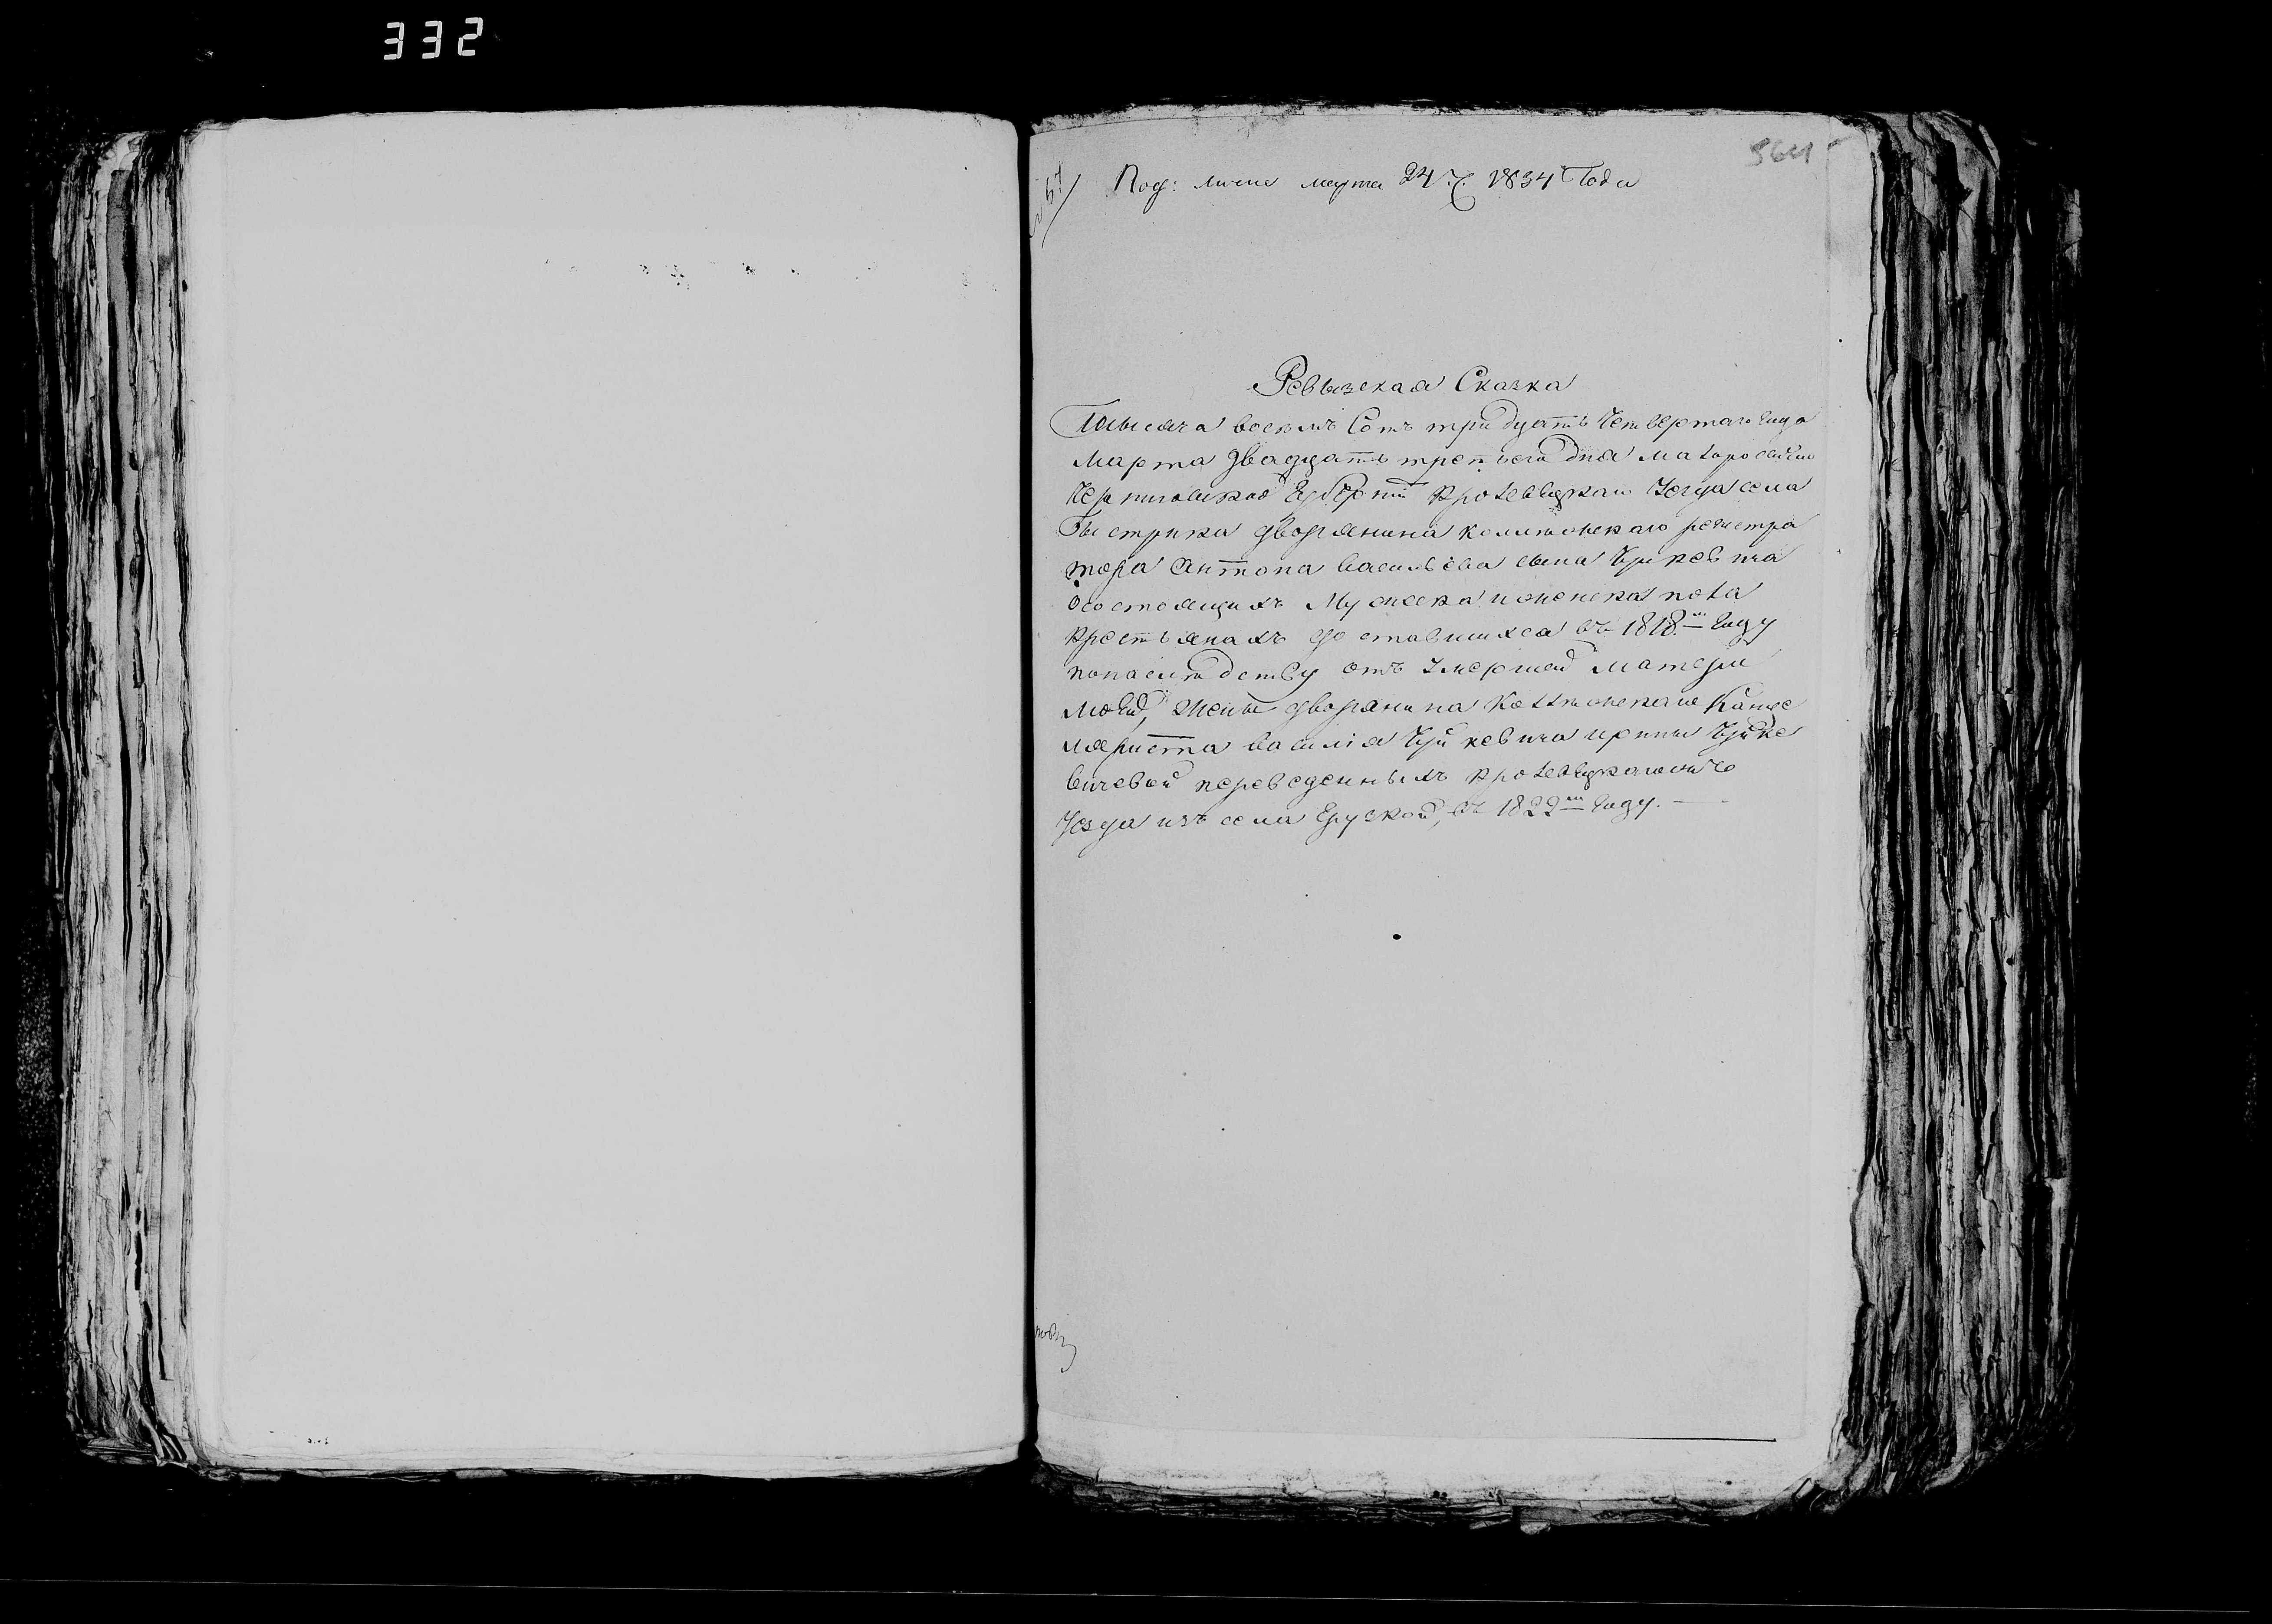 332
564
№ 67
Под: лично марта 24 ч. 1834 Года
Ревызская Сказка
Тысяча восемъ Сотъ тридцать Четвертаго года
Марта двадцать третьего дня Малоросийско
Черниговской Губернии Кролевецкаго уезда села
Быстрика дворянина коллежскаго регистра
тора Антона васильева сына Чуйкевича
о состоящихъ Мужеска и женска пола
крестьянахъ доставшихся въ 1818м Году
по наследству отъ умершей матери
моей, жены дворянина Коллежскаго Канце
ляриста василія Чуйкевича ирины Чуйке
вичевой переведенныхъ Кролевецкаго
уезда изъ села Грузкой, въ 1822м Году.